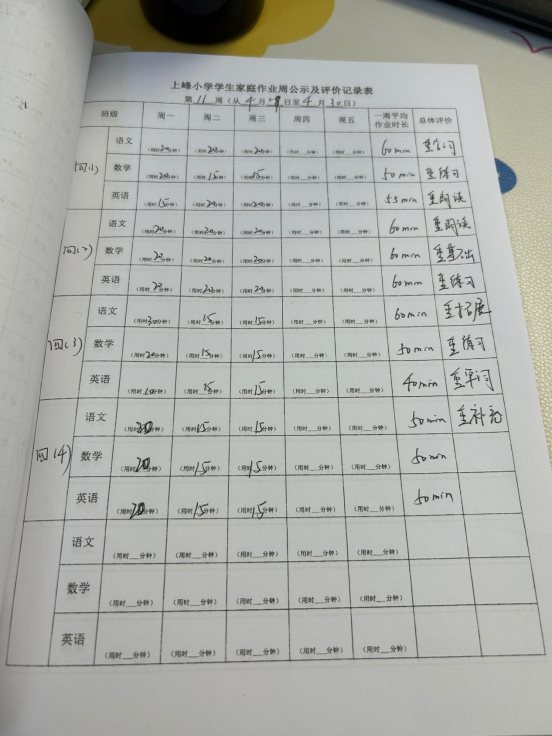 上峰小学学生家庭作业周公示及评价记录表
第 11 周（从 4 月 28 日至 4 月 30 日）
班级 周一 周二 周三 周四 周五 一周平均作业时长 总体评价
四(1) 语文 （用时20分钟） （用时20分钟） （用时20分钟） （用时___分钟） （用时___分钟） 60min
数学 （用时20分钟） （用时15分钟） （用时15分钟） （用时___分钟） （用时___分钟） 50min 重练习
英语 （用时15分钟） （用时20分钟） （用时20分钟） （用时___分钟） （用时___分钟） 55min 重阅读
四(2) 语文 （用时20分钟） （用时20分钟） （用时20分钟） （用时___分钟） （用时___分钟） 60min 重阅读
数学 （用时20分钟） （用时20分钟） （用时20分钟） （用时___分钟） （用时___分钟） 60min 重基础
英语 （用时20分钟） （用时20分钟） （用时20分钟） （用时___分钟） （用时___分钟） 60min 重练习
四(3) 语文 （用时30分钟） （用时15分钟） （用时15分钟） （用时___分钟） （用时___分钟） 60min 重拓展
数学 （用时20分钟） （用时15分钟） （用时15分钟） （用时___分钟） （用时___分钟） 50min 重练习
英语 （用时10分钟） （用时15分钟） （用时15分钟） （用时___分钟） （用时___分钟） 40min 重单词
四(4) 语文 （用时20分钟） （用时15分钟） （用时15分钟） （用时___分钟） （用时___分钟） 50min 重补充
数学 （用时20分钟） （用时15分钟） （用时15分钟） （用时___分钟） （用时___分钟） 50min
英语 （用时20分钟） （用时15分钟） （用时15分钟） （用时___分钟） （用时___分钟） 50min
语文 （用时___分钟） （用时___分钟） （用时___分钟） （用时___分钟） （用时___分钟）
数学 （用时___分钟） （用时___分钟） （用时___分钟） （用时___分钟） （用时___分钟）
英语 （用时___分钟） （用时___分钟） （用时___分钟） （用时___分钟） （用时___分钟）